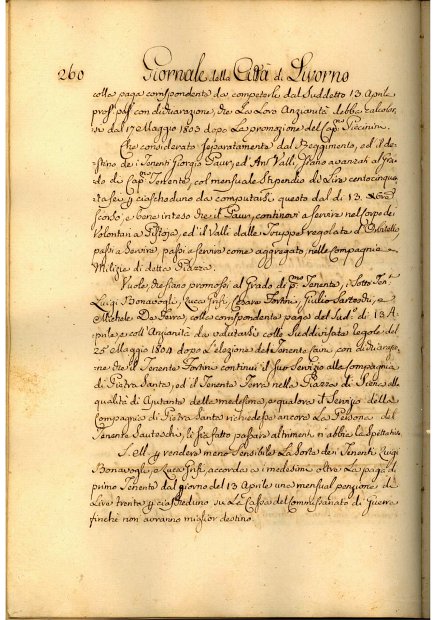 260 Giornale della Città di Livorno
colla paga corrispondente da competerli dal Suddetto 13 Aprile
pross. pass. con dichiarazione, che La Loro Anzianità debba calcolar
si dal 17 Maggio 1803 dopo La promozione del Cap.no Piccinini
Che considerato Separatamente dal Reggimento, ed il de
stino de i Tenenti Giorgio Paur, ed Ant. Valli, siano avanzati al Gra
do di Cap.no Tenente, col mensuale Stipendio di Lire centocinqu
anta sei p ciascheduno da computarsi questo dal dì 13
Scorso, e bene inteso che il Paur, continovi a servire nel Corpo de
Volontari a Pistoja, ed il Valli dalle Truppe regolate d'
passi a Servire, passi a servire come aggregato, nelle Compagnie
Milizie di detta Piazza.
Vuole, che siano promossi al Grado di p.mo Tenente, i Sotto Ten.ti
Luigi Bonavogli, Lucca Grifi, Cesare Fortini, Giulio e
Michele De Terra, colla corrispondente paga del Sud.o dì 13 A
prile e coll'Anzianità da valutarsi colle Suddivisate regole del
25 Maggio 1804 dopo L'elezione del Tenente con dichiarazio
ne che il Tenente Fortini continui il suo Servizio alla Compagnia
di Pietra Santa, ed il Tenente Terra nella Piazza di Siena alla
qualità di Ajutante della medesima, e qualora il Servizio della
Compagnia di Pietra Santa richiedesse ancora La Persona del
Tenente li sia fatto passare altrimenti n'abbia La
S. M. p rendere meno Sensibile La Sorte dei Tenenti Luigi
Bonavogli, e Lucca Grifi, accorda a i medesimi oltre La paga di
primo Tenente dal giorno del 13 Aprile una mensual penzione di
Lire trenta p ciascheduno su La Cassa del Commissariato di Guerra
finché non avranno miglior destino.